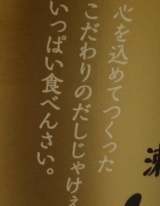 心を込めてつくった
こだわりのだしじゃけえ
いっぱい食べんさい。